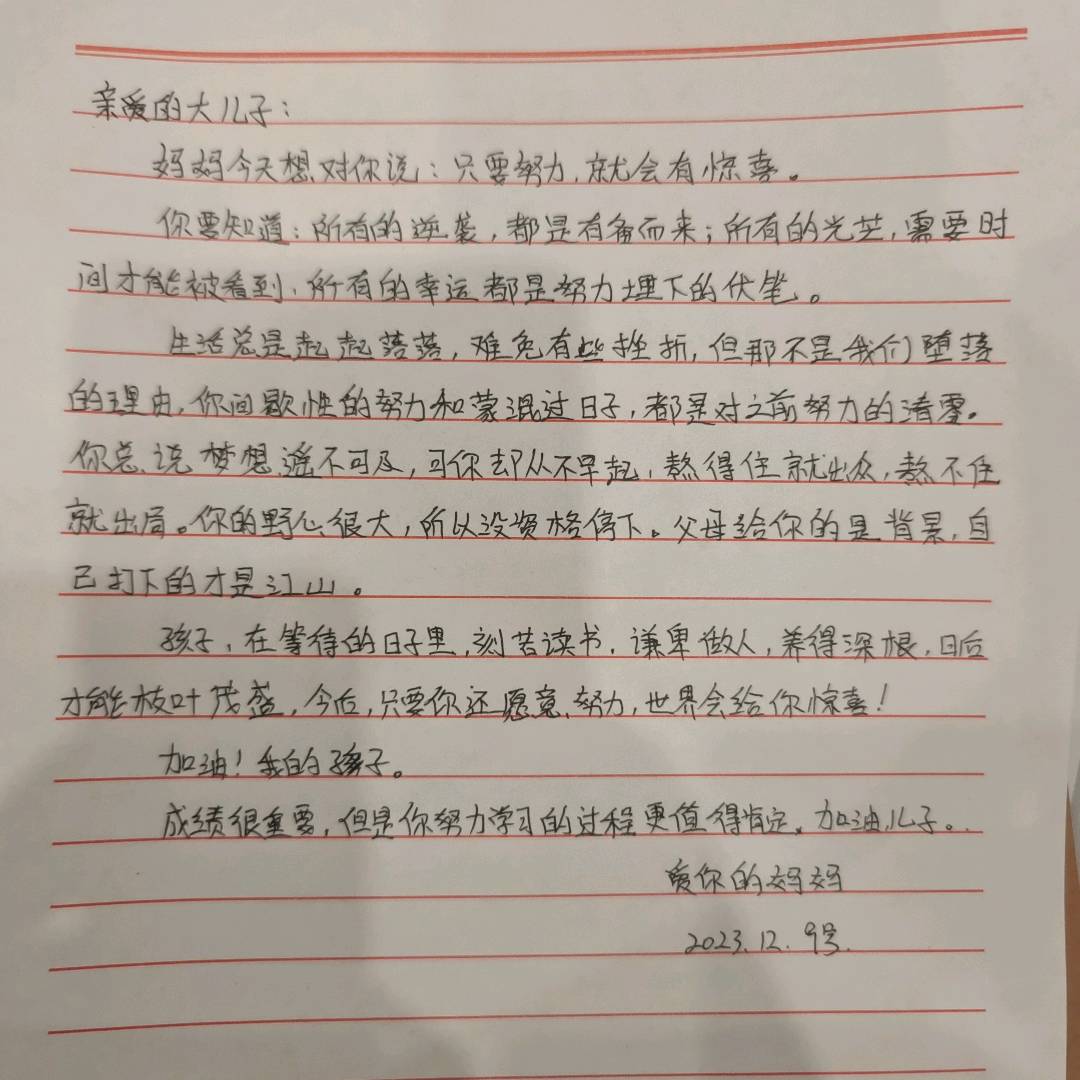 亲爱的大儿子：
妈妈今天想对你说：只要努力，就会有惊喜。
你要知道：所有的逆袭，都是有备而来；所有的光芒，需要时
间才能被看到，所有的幸运都是努力埋下的伏笔。
生活总是起起落落，难免有些挫折，但那不是我们堕落
的理由，你间歇性的努力和蒙混过日子，都是对之前努力的清零。
你总说梦想遥不可及，可你却从不早起，熬得住就出众，熬不住
就出局。你的野心很大，所以没资格停下。父母给你的是背景，自
己打下的才是江山。
孩子，在等待的日子里，刻苦读书，谦卑做人，养得深根，日后
才能枝叶茂盛，今后，只要你还愿意努力，世界会给你惊喜！
加油！我的孩子。
成绩很重要，但是你努力学习的过程更值得肯定。加油儿子。
爱你的妈妈
2023.12.9号.